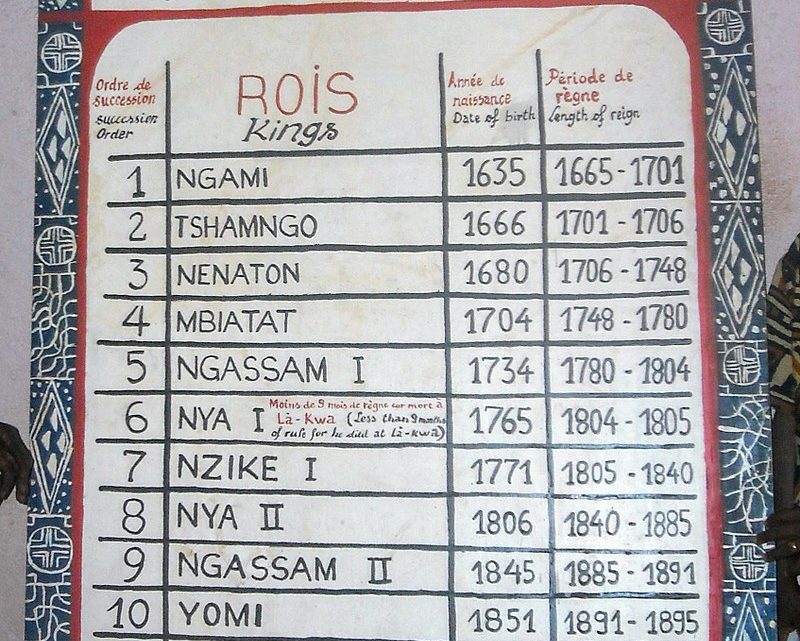 Ordre de succession
succession Order
ROIS
Kings
Année de naissance
Date of birth
Période de règne
Length of reign
1 NGAMI 1635 1665-1701
2 TSHAMNGO 1666 1701-1706
3 NENATON 1680 1706-1748
4 MBIATAT 1704 1748-1780
5 NGASSAM I 1734 1780-1804
6 NYA I Moins de 9 mois de règne car mort à Là-Kwa (Less than 9 months of rule for he died at Là-kwà) 1765 1804-1805
7 NZIKE I 1771 1805-1840
8 NYA II 1806 1840-1885
9 NGASSAM II 1845 1885-1891
10 YOMI 1851 1891-1895